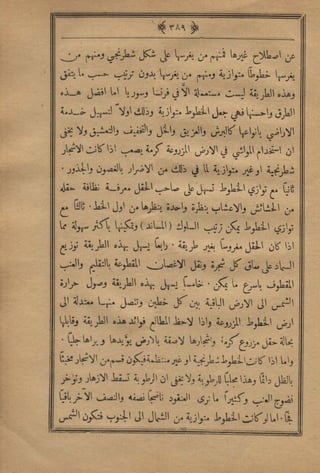 ﴿ ٣٨٩ ﴾
عن اصطلاح غيرها فمنهم من يغرسها على شكل شطرنجي ومنهم من
يغرسها خطوطًا متوازية ومنهم من يغرسها بدون ترتيب حسب ما يتفق
وهذه الطريقة ليست مستعملة الا في فرنسا وسوريا اما افضل هذه
الطرق واحسنها فهي جعل الخطوط متوازية وذلك اولاً لتسهيل خدمة
الاراضي بانواعها كالبرش والعزيق والخل والتخفيف والتعشيق ولا يخفى
ان استخدام المواشي في الارض المزروعة كرمة يصعب اذا كانت الاشجار
شطرنجية او غير متوازية لما في ذلك من الاضرار بالغصون والجذور ·
ثانيًا مع توازي الخطوط تسهل على صاحب الحقل معرفة نظافة حقله
من الحشائش والاعشاب بنظرة واحدة ينظرها من اول الخط · ثالثًا مع
توازي الخطوط يمكن ترتيب السلوك (المساند) وتمكينها باكثر سهولة مما
اذا كان الحقل مغروسًا بغير طريقة · رابعًا يسهل بهذه الطريقة توزيع
السماد على ساق كل شجرة ونقل الاغصان المقطوعة بالتقليم والعنب
المقطوف باسرع ما يمكن · خامسًا يسهل بهذه الطريقة وصول حرارة
الشمس الى الارض الباقية بين كل خطين وتتصل منها معتدلة الى
ارض الخطوط المزروعة واذا لاحظ المطالع فوائد هذه الطريقة وقابلها
بحالة حقل مزروع كرمة وشجارها لاصقة بالارض يؤيدها ويراها جليًا ·
واما اذا كانت الخطوط شطرنجية او غير منتظمة فيكون قسم من الاشجار مخبئًا
بالظل دائمًا وهذا مجلبًا للرطوبة ولا يخفى ان الرطوبة تسقط الازهار وتؤخر
نضوج العنب وكثيرًا ما نرى العنقود ناضجًا نصفه والنصف الآخر باقيًا
فجًا · اما لو كانت الخطوط متوازية من الشمال الى الجنوب فتكون الشمس